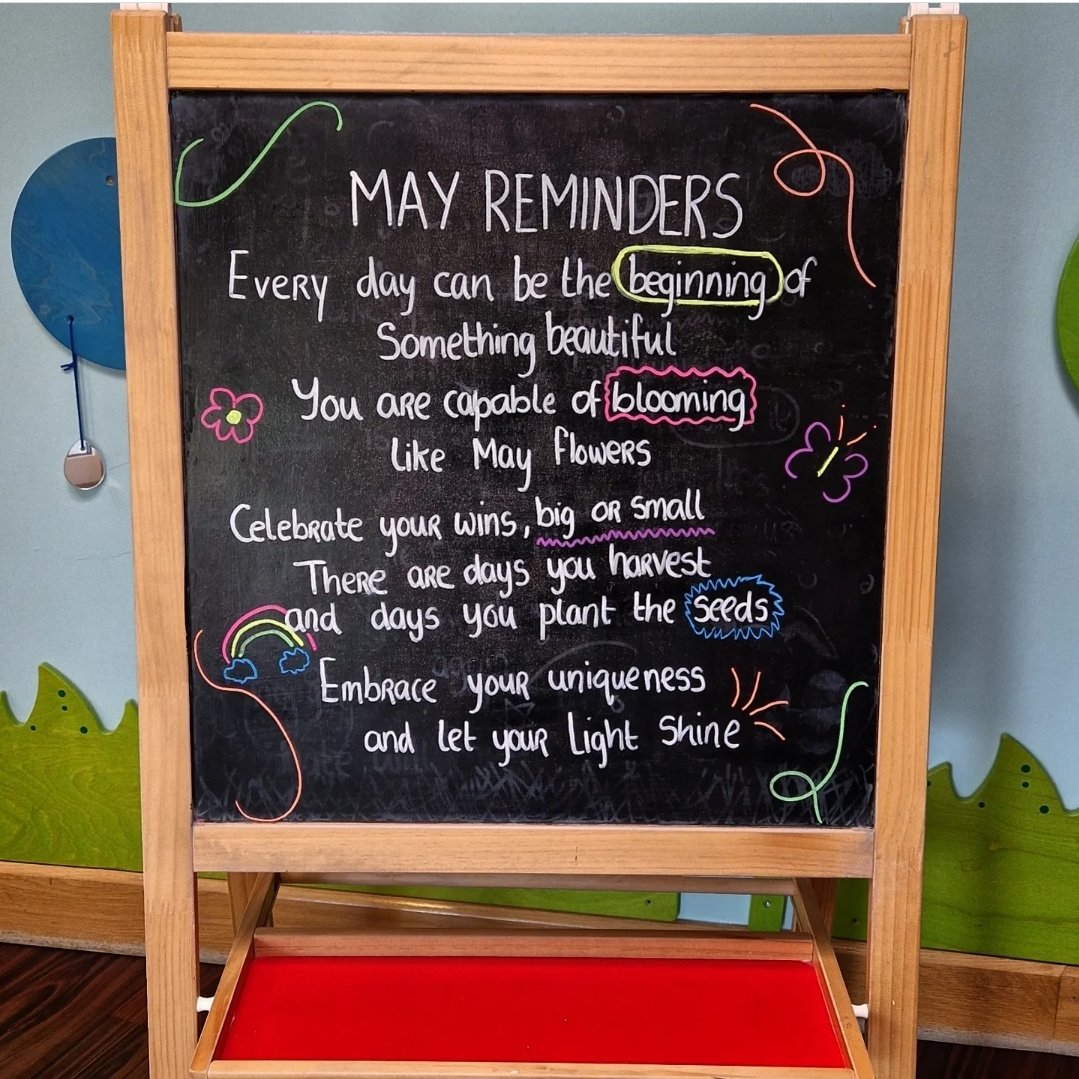 MAY REMINDERS
Every day can be the beginning of
Something beautiful
You are capable of blooming
like May flowers
Celebrate your wins, big or small
There are days you harvest
and days you plant the seeds
Embrace your uniqueness
and let your light shine